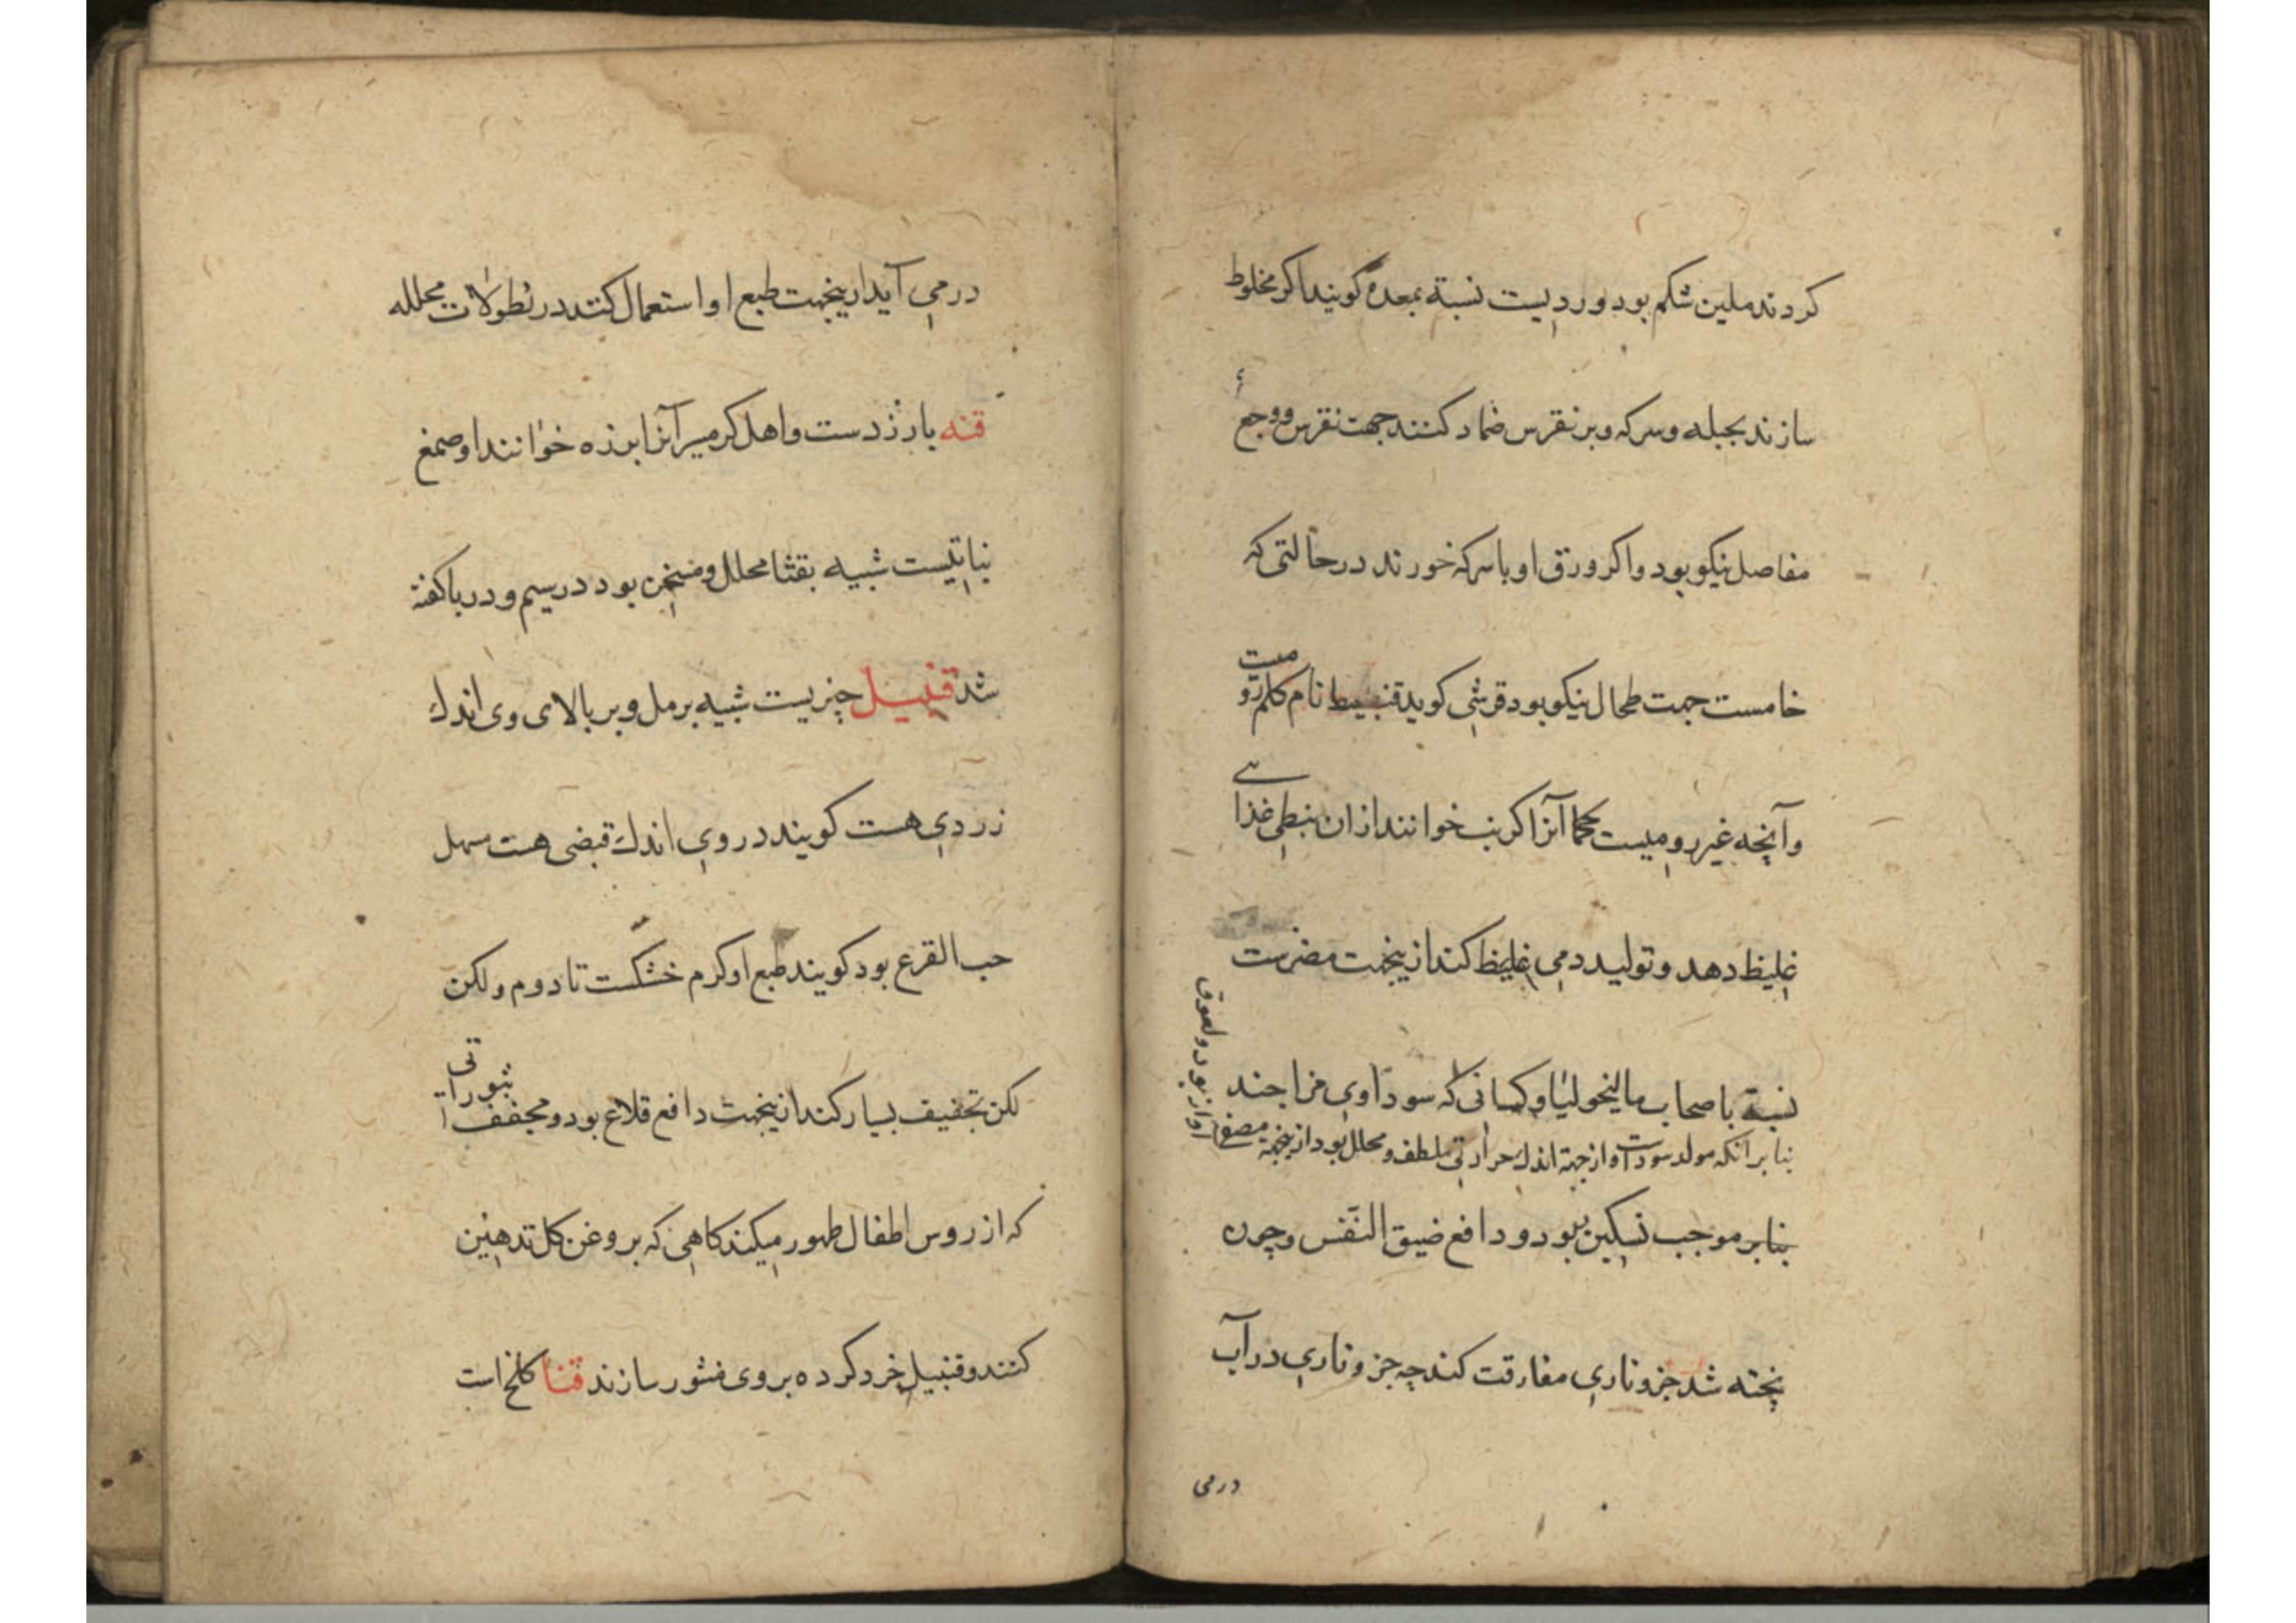 کردند ملین شکم بود و ردیست نسبة بمعده گویند اکر مخلوط
سازند بجبله و سرکه و بر نقرس ضماد کنند جهت نقرس و وجع
مفاصل نیکو بود و اکر ورق او با سرکه خورند در حالتی که
خامست جهت طحال نیکو بود قرشی کوید قنبیط نام کلم رومیست
و آنچه غیر رومیست حکما آنرا کرنب خوانند ازان نبطی غذاے
غلیظ دهد و تولید دمی غلیظ کند ازینجهت مضرست
نسبة باصحاب مالیخولیا و کسانی که سوداوی مزاجند
بنابر آنکه مولد سوداست و از جهة اندك حرارتی ملطف و محلل بود ازینجهة مصفی
آواز بود و لعوق
بنابر موجب تسکین بود و دافع ضیق النفس و چون
پخته شد جزو ناری مفارقت کند چه جزو ناری در آب
درمی
درمی آید ازینجهت طبع او استعمال کنند در نطولات محلله
قنه بارزدست و اهل کرمسیر آنرا برزه خوانند او صمغ
نباتیست شبیه بقثا محلل و مسخن بود در سیم و در باکفته
شد قنبیل چیزیست شبیه برمل و بر بالای وی اندك
زردی هست کویند در وی اندك قبضی هست مسهل
حب القرع بود کویند طبع او کرم خشکست تا دوم ولکن
لکن تجفیف بسیار کند ازینجهت دافع قلاع بود و مجفف بثوراتی
که از روس اطفال ظهور میکند کاهی که بروغن کل تدهین
کنند و قنبیل خرد کرده بر وی منثور سازند قنا کلخ است